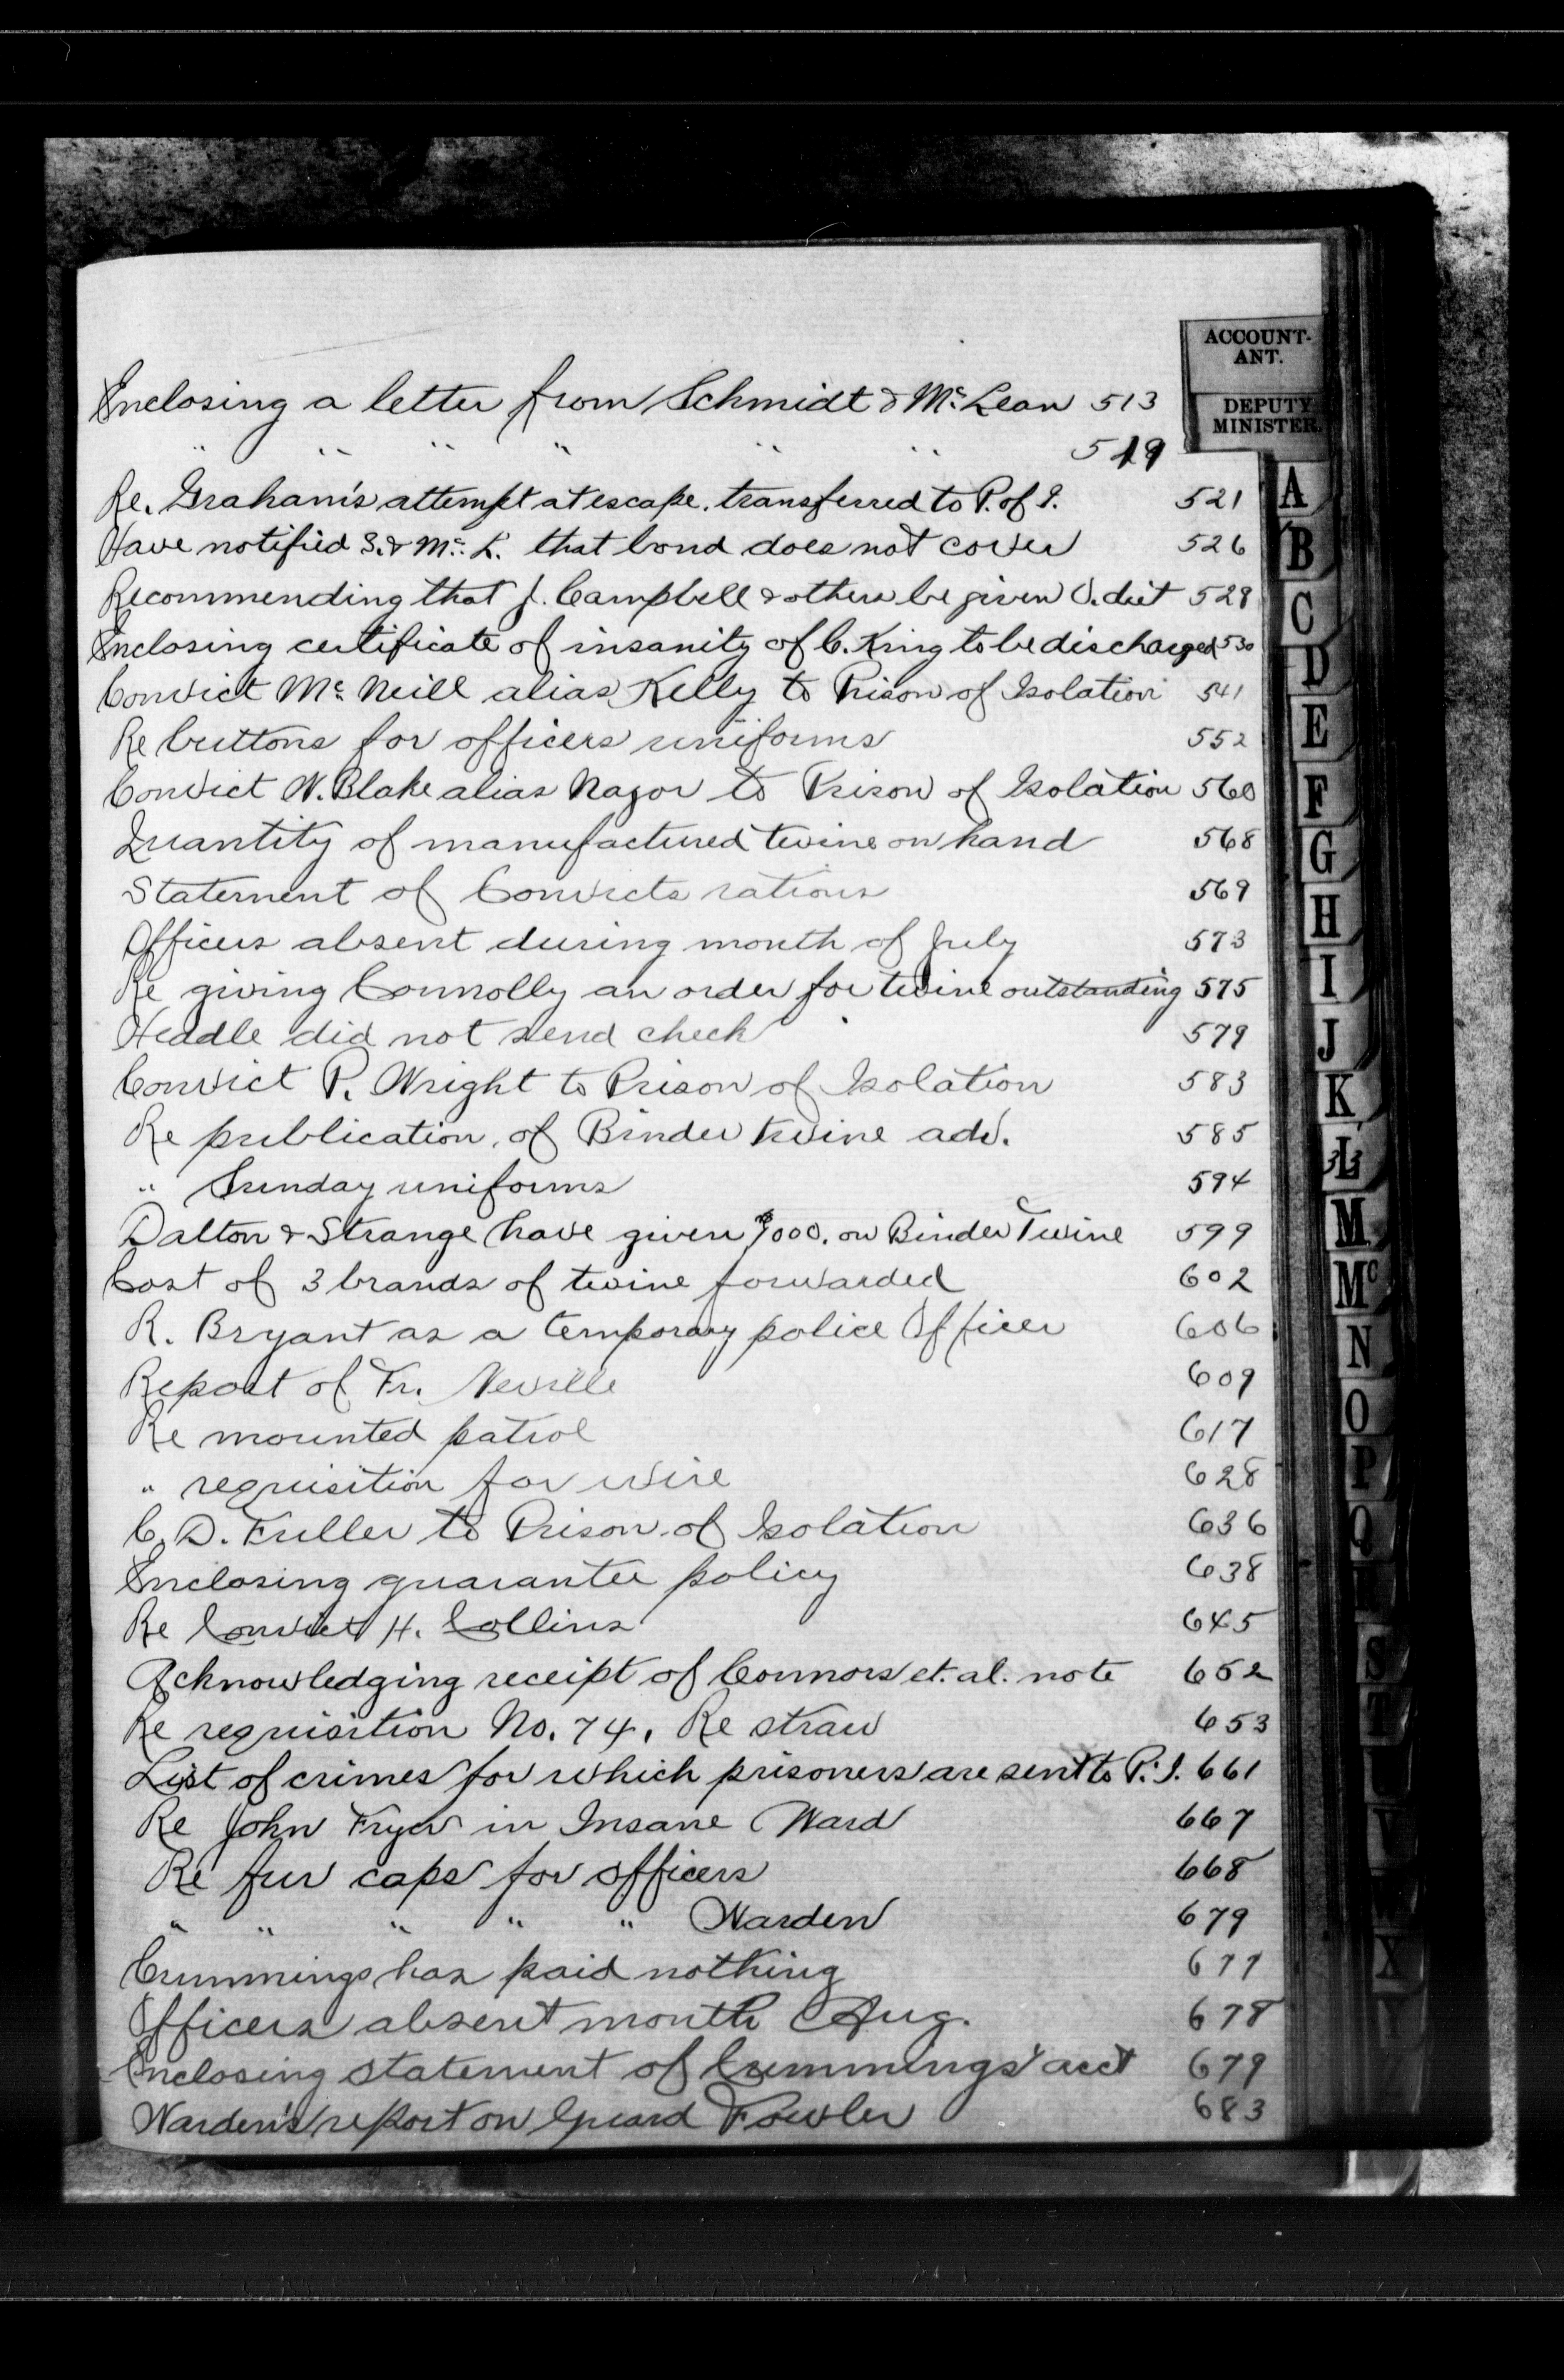 ACCOUNT-
ANT.
DEPUTY
MINISTER.
Enclosing a letter from Schmidt & Mc Lean 513
" " " " " " 519
Re. Graham's attempt at escape. transferred to P. of I. 521
Have notified S. & Mc. L. that bond does not cover 526
Recommending that J. Campbell & others be given O. diet 528
Enclosing certificate of insanity of C. King to be discharged 530
Convict Mc Neill alias Kelly to Prison of Isolation 541
Re buttons for officers uniforms 552
Convict W. Blake alias Nagor to Prison of Isolation 560
Quantity of manufactured twine on hand 568
Statement of Convicts rations 569
Officers absent during month of July 573
Re giving Connolly an order for twine outstanding 575
Headle did not send check 579
Convict P. Wright to Prison of Isolation 583
Re publication of Binder twine adv. 585
" Sunday uniforms 594
Dalton & Strange have given $1000. on Binder Twine 599
Cost of 3 brands of twine forwarded 602
R. Bryant as a temporary police Officer 606
Report of Fr. Neville 609
Re mounted patrol 617
" requisition for wire 628
C. D. Fuller to Prison of Isolation 636
Enclosing guarantee policy 638
Re Convict H. Collins 645
Acknowledging receipt of Connors et. al. note 652
Re requisition No. 74, Re straw 653
List of crimes for which prisoners are sent to P. I. 661
Re John Fryer in Insane Ward 667
Re fur caps for officers 668
" " " " " Warden 679
Cummings has paid nothing 677
Officers absent month Aug. 678
Enclosing statement of Cummings' acct 679
Warden's report on Guard Fowler 683
A
B
C
D
E
F
G
H
I
J
K
L
M
Mc
N
O
P
Q
R
S
T
V
W
X
Y